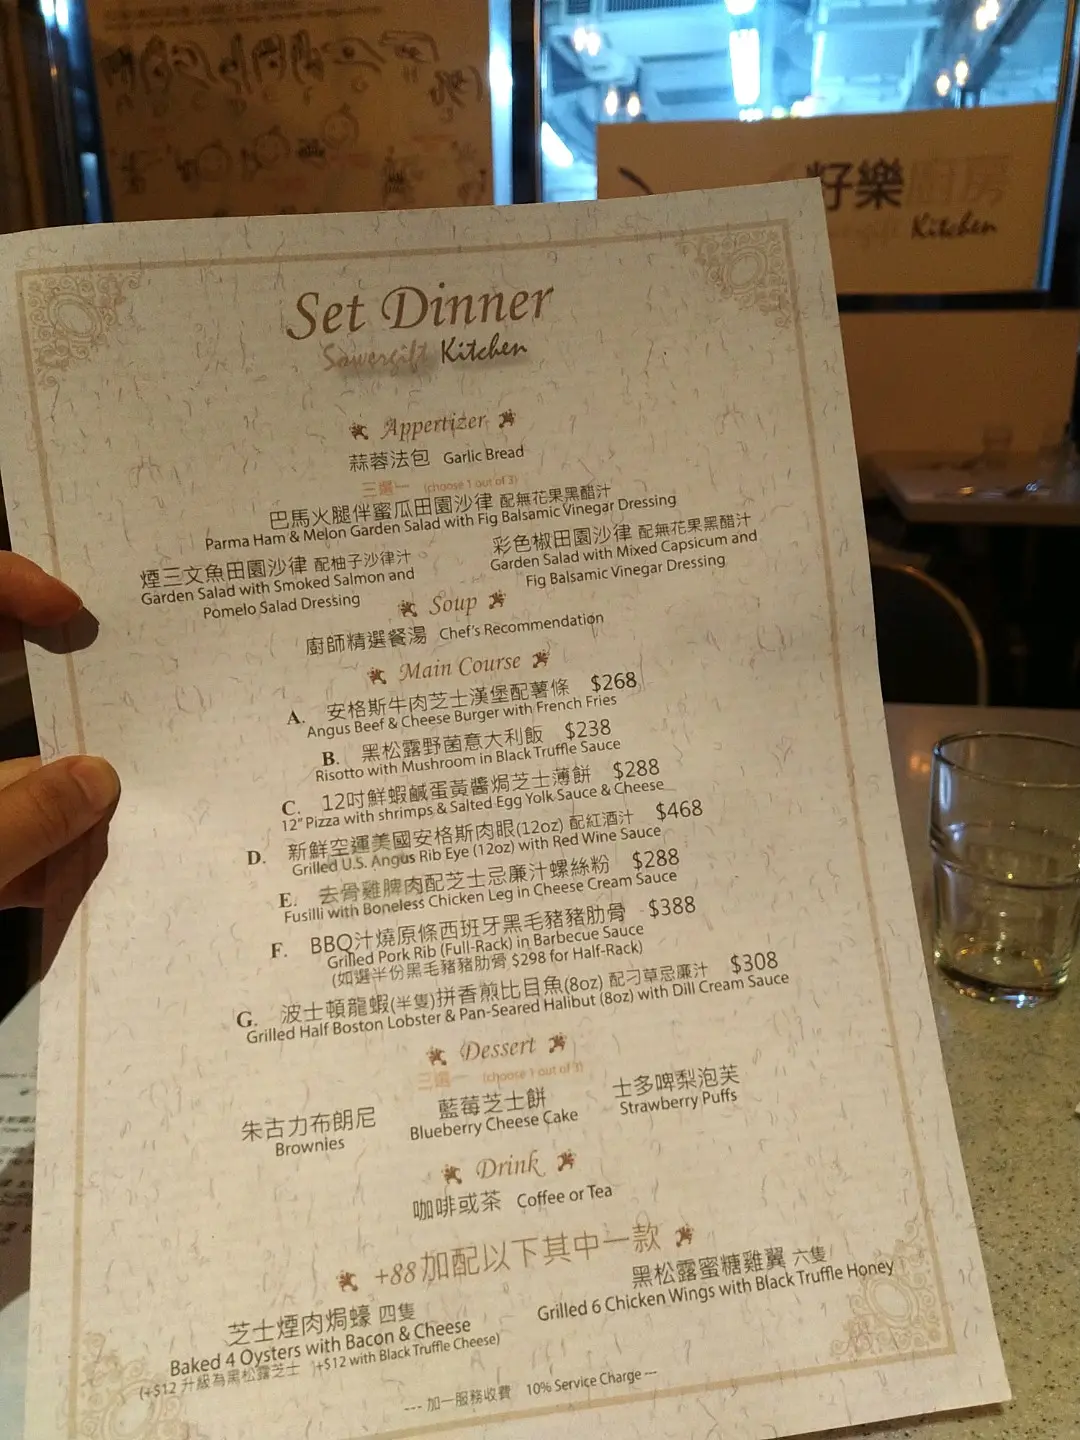 籽樂廚房
Kitchen
Set Dinner
Sowergift Kitchen
Appertizer
蒜蓉法包 Garlic Bread
三選一 (choose 1 out of 3)
巴馬火腿伴蜜瓜田園沙律 配無花果黑醋汁
Parma Ham & Melon Garden Salad with Fig Balsamic Vinegar Dressing
煙三文魚田園沙律 配柚子沙律汁
Garden Salad with Smoked Salmon and
Pomelo Salad Dressing
彩色椒田園沙律 配無花果黑醋汁
Garden Salad with Mixed Capsicum and
Fig Balsamic Vinegar Dressing
Soup
廚師精選餐湯 Chef's Recommendation
Main Course
A. 安格斯牛肉芝士漢堡配薯條 $268
Angus Beef & Cheese Burger with French Fries
B. 黑松露野菌意大利飯 $238
Risotto with Mushroom in Black Truffle Sauce
C. 12吋鮮蝦鹹蛋黃醬焗芝士薄餅 $288
12" Pizza with shrimps & Salted Egg Yolk Sauce & Cheese
D. 新鮮空運美國安格斯肉眼(12oz) 配紅酒汁 $468
Grilled U.S. Angus Rib Eye (12oz) with Red Wine Sauce
E. 去骨雞脾肉配芝士忌廉汁螺絲粉 $288
Fusilli with Boneless Chicken Leg in Cheese Cream Sauce
F. BBQ汁燒原條西班牙黑毛豬豬肋骨 $388
Grilled Pork Rib (Full-Rack) in Barbecue Sauce
(如選半份黑毛豬豬肋骨 $298 for Half-Rack)
G. 波士頓龍蝦(半隻)拼香煎比目魚(8oz) 配刁草忌廉汁 $308
Grilled Half Boston Lobster & Pan-Seared Halibut (8oz) with Dill Cream Sauce
Dessert
三選一 (choose 1 out of 3)
朱古力布朗尼
Brownies
藍莓芝士餅
Blueberry Cheese Cake
士多啤梨泡芙
Strawberry Puffs
Drink
咖啡或茶 Coffee or Tea
+88加配以下其中一款
芝士煙肉焗蠔 四隻
Baked 4 Oysters with Bacon & Cheese
(+$12 升級為黑松露芝士 +$12 with Black Truffle Cheese)
黑松露蜜糖雞翼 六隻
Grilled 6 Chicken Wings with Black Truffle Honey
--- 加一服務收費 10% Service Charge ---